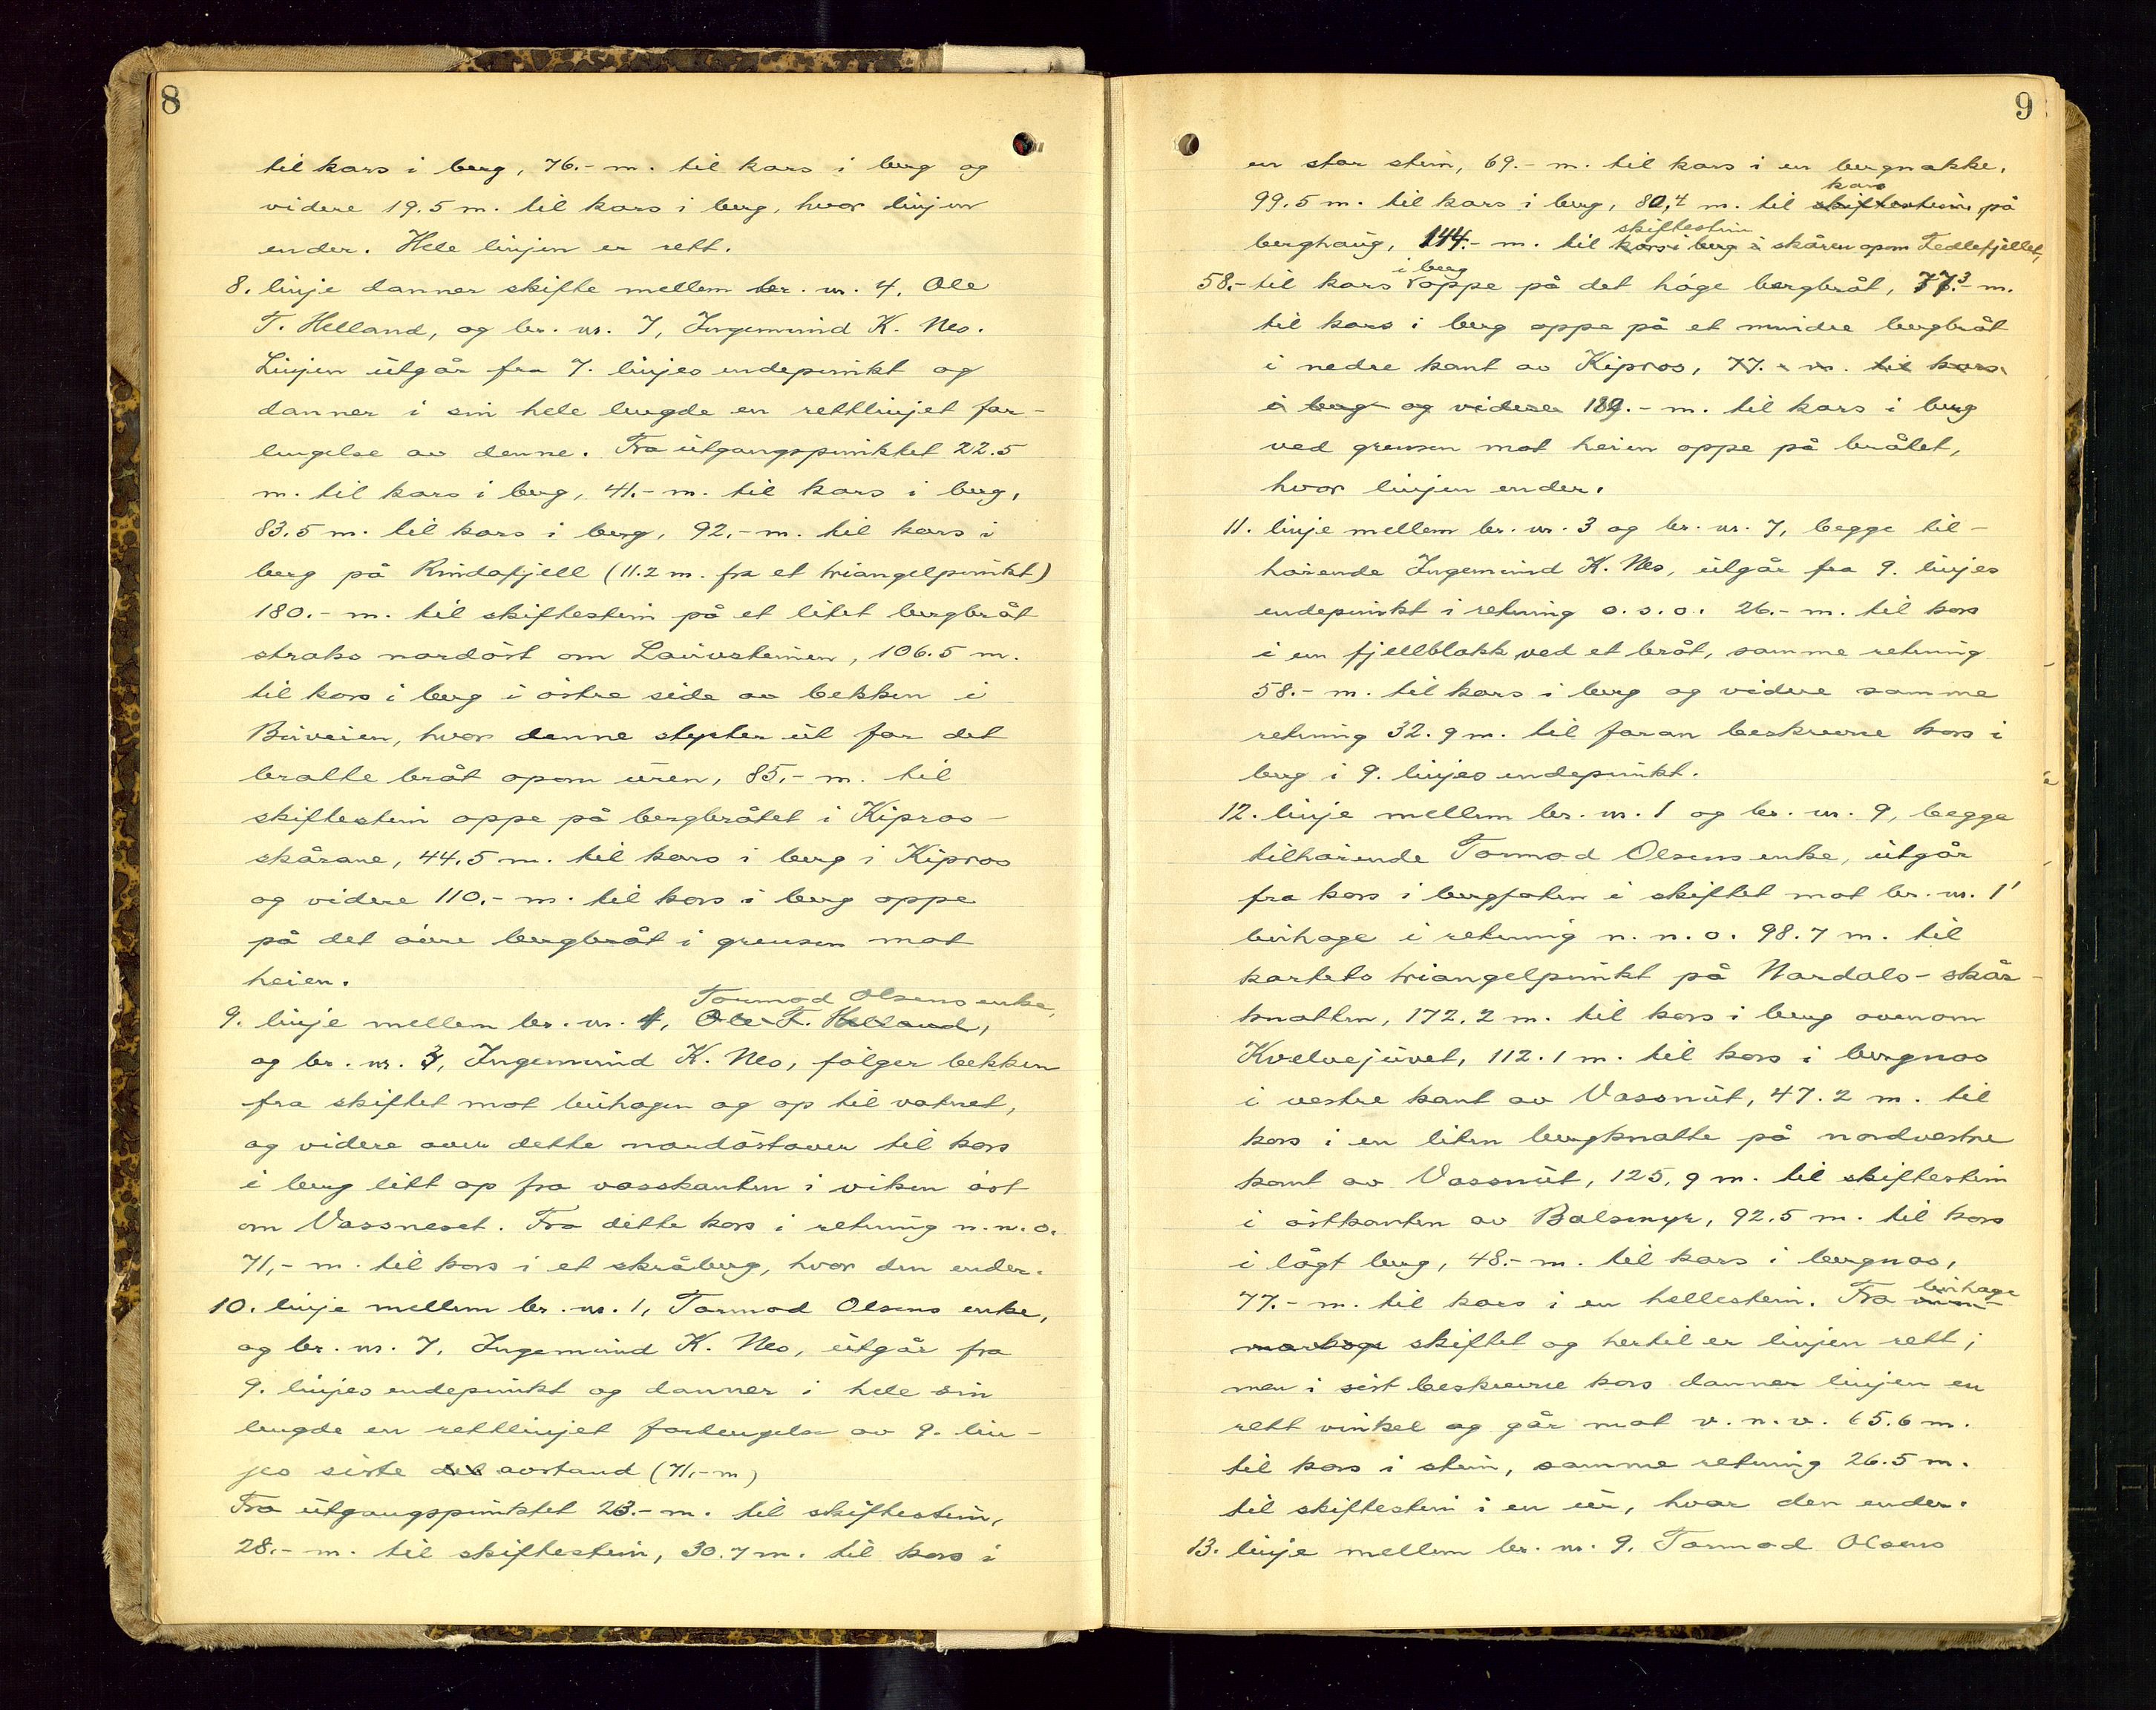 8
til kors i berg, 76.- m. til kors i berg og
videre 19.5 m. til kors i berg, hvor linjen
ender. Hele linjen er rett.
8. linje danner skifte mellem br. nr. 4, Ole
T. Helland, og br. nr. 7, Ingemund K. Nes.
Linjen utgår fra 7. linjes endepunkt og
danner i sin hele lengde en rettlinjet for-
lengelse av denne. Fra utgangspunktet 22.5
m. til kors i berg, 41.- m. til kors i berg,
83.5 m. til kors i berg, 92.- m. til kors i
berg på Rindafjell (11.2 m. fra et triangelpunkt)
180.- m. til skiftestein på et litet bergbråt
straks nordöst om Lauvsteinen, 106.5 m.
til kors i berg i östre side av bekken i
Buveien, hvor denne styrter ut for det
bratte bråt opom uren, 85.- m. til
skiftestein oppe på bergbråtet i Kipros-
skårane, 44.5 m. til kors i berg i Kipros
og videre 110.- m. til kors i berg oppe
på det övre bergbråt i grensen mot
heien.
Tormod Olsens enke,
9. linje mellem br. nr. 4, Ole T. Helland,
og br. nr. 3, Ingemund K. Nes, fölger bekken
fra skiftet mot buhagen og op til vatnet,
og videre over dette nordöstover til kors
i berg litt op fra vasskanten i viken öst
om Vassneset. Fra dette kors i retning n.n.o.
71,- m. til kors i et skråberg, hvor den ender.
10. linje mellem br. nr. 1, Tormod Olsens enke,
og br. nr. 7, Ingemund K. Nes, utgår fra
9. linjes endepunkt og danner i hele sin
lengde en rettlinjet forlengelse av 9. lin-
jes siste del avstand (71,- m)
Fra utgangspunktet 23.- m. til skiftestein,
28.- m. til skiftestein, 30.7 m. til kors i
9
en stor stein, 69.- m. til kors i en bergnakke,
kors
99.5 m. til kors i berg, 80,4 m. til skiftestein på
skiftestein
berghaug, 144.- m. til kors i berg i skåren opom Tedlefjellet,
i berg
58.- til kors oppe på det höge bergbråt, 77.3 m.
til kors i berg oppe på et mindre bergbråt
i nedre kant av Kipros, 77.- m. til kors
i berg og videre 189.- m. til kors i berg
ved grensen mot heien oppe på bråtet,
hvor linjen ender.
11. linje mellem br. nr. 3 og br. nr. 7, begge til-
hörende Ingemund K. Nes, utgår fra 9. linjes
endepunkt i retning o.s.o. 26.- m. til kors
i en fjellblokk ved et bråt, samme retning
58.- m. til kors i berg og videre samme
retning 32.9 m. til foran beskrevne kors i
berg i 9. linjes endepunkt.
12. linje mellem br. nr. 1 og br. nr. 9, begge
tilhörende Tormod Olsens enke, utgår
fra kors i bergfoten i skiftet mot br. nr. 1'
buhage i retning n.n.o. 98.7 m. til
kartets triangelpunkt på Nordals-skår-
knatten, 172.2 m. til kors i berg ovenom
Kvelvejuvet, 112.1 m. til kors i bergnos
i vestre kant av Vassnut, 47.2 m. til
kors i en liten bergknatte på nordvestre
kant av Vassnut, 125,9 m. til skiftestein
i östkanten av Balsmyr, 92.5 m. til kors
i lågt berg, 48.- m. til kors i bergnos,
buhage
77.- m. til kors i en hellestein. Fra
skiftet og hertil er linjen rett;
men i sist beskrevne kors danner linjen en
rett vinkel og går mot v.n.v. 65.6 m.
til kors i stein, samme retning 26.5 m.
til skiftestein i en ur, hvor den ender.
13. linje mellem br. nr. 9. Tormod Olsens